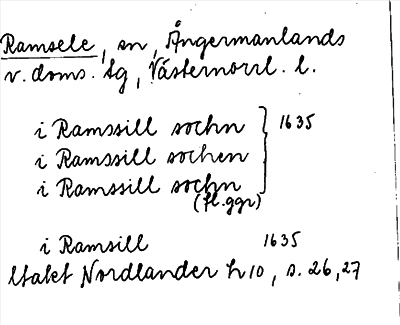 Ramsele, sn, Ångermanlands
v. doms. tg, Västernorrl. l.
i Ramssill sochn } 1635
i Ramssill sochen
i Ramssill sochn
(fl. ggr)
i Ramsill 1635
Utakt Nordlander h 10, s. 26, 27